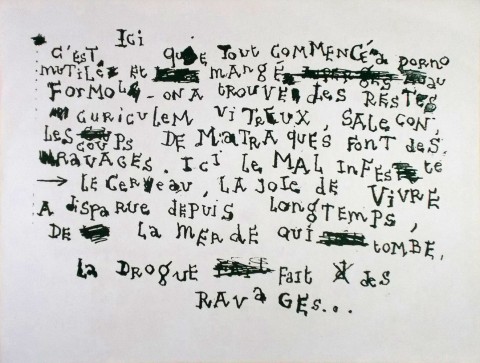 Ici
C'EST QUE TOUT COMMENCÉ à PORNO
MUTILÉ ET MANGÉ AU
FORMOL - ON A TROUVE DES RESTES
CURICULEM VITREUX, SALE CON,
LES COUPS DE MATRAQUES FONT DES
RAVAGES. Ici LE MAL INFESTE
→ LE CERVEAU, LA JOIE DE VIVRE
A DISPARUE DEPUIS LONGTEMPS,
DE LA MERDE QUI TOMBE,
LA DROGUE FAIT DES
RAVAGES...